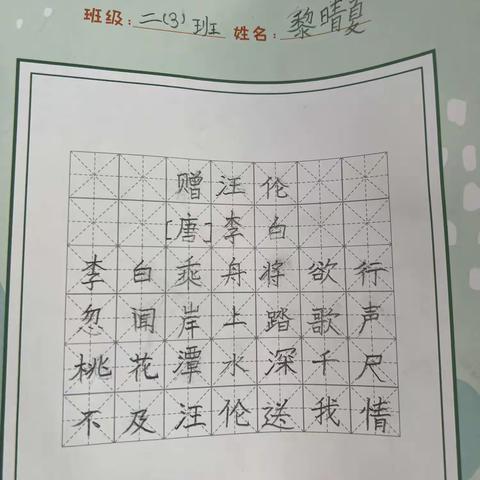 班级：二(3)班 姓名：黎晴夏
赠汪伦
[唐]李白
李白乘舟将欲行
忽闻岸上踏歌声
桃花潭水深千尺
不及汪伦送我情